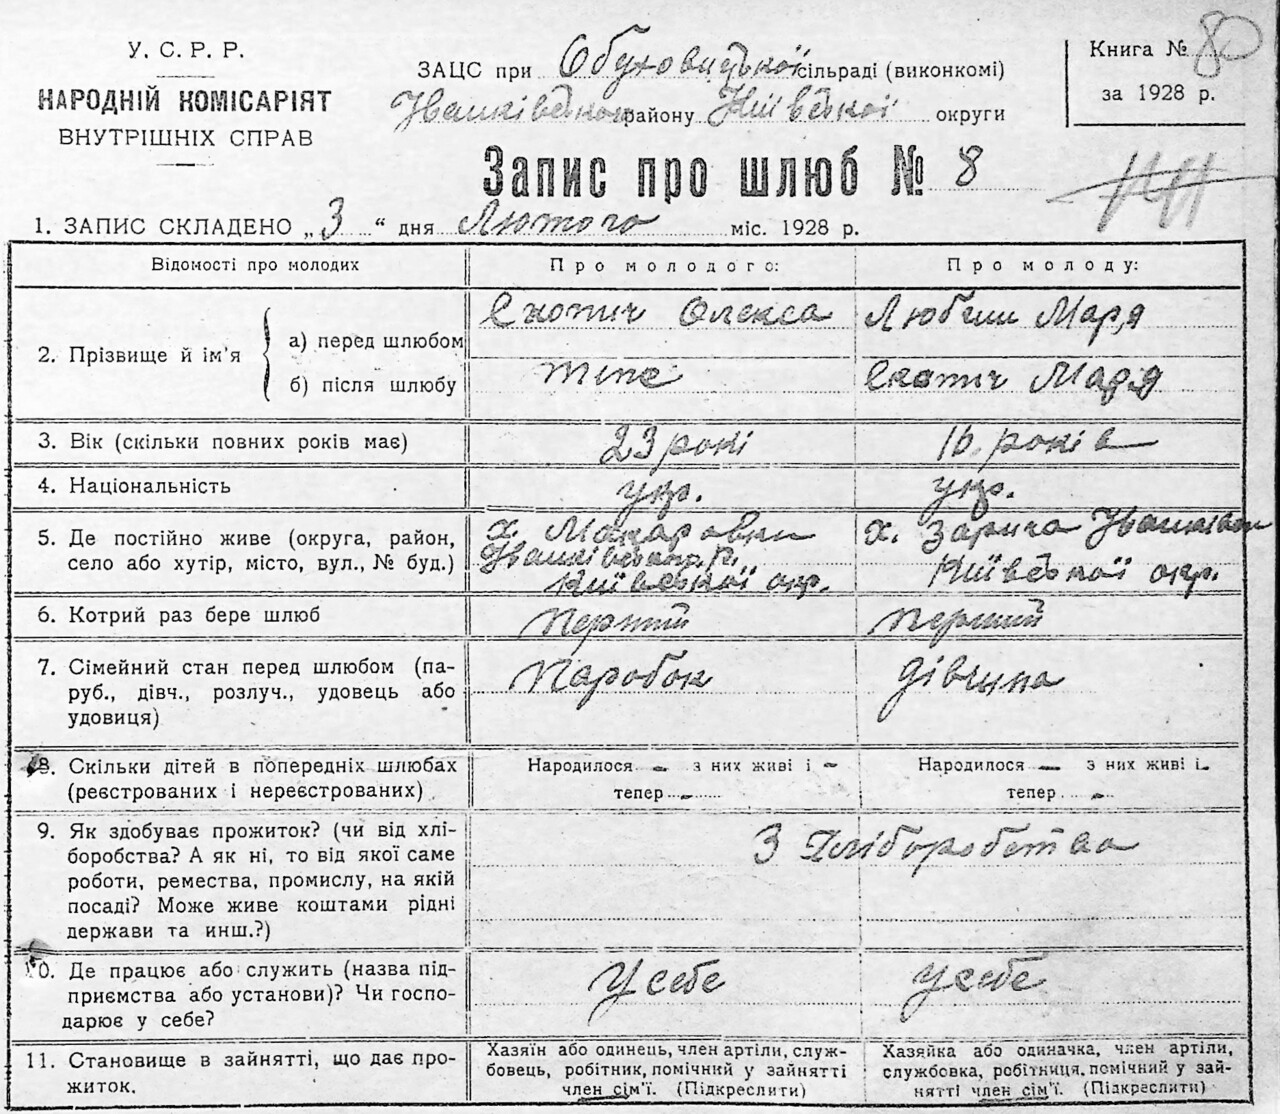 У. С. Р. Р.
НАРОДНІЙ КОМІСАРІЯТ
ВНУТРІШНІХ СПРАВ
ЗАЦС при Обуховицької сільраді (виконкомі)
Іванківського району Київської округи
Книга № 80
за 1928 р.
Запис про шлюб № 8
1. ЗАПИС СКЛАДЕНО „3" дня Лютого міс. 1928 р.
Відомості про молодих
Про молодого:
Про молоду:
2. Прізвище й ім'я
а) перед шлюбом
Скопич Олекса
Любели Мар'я
б) після шлюбу
теж
Скопич Мар'я
3. Вік (скільки повних років має)
23 рокі
16 років
4. Національність
укр.
укр.
5. Де постійно живе (округа, район, село або хутір, місто, вул., № буд.)
х. Макаровки
Іванківськ. р.
Київської окр.
х. Зарича Іванків
Київської окр.
6. Котрий раз бере шлюб
перший
перший
7. Сімейний стан перед шлюбом (паруб., дівч., розлуч., удовець або удовиця)
Паробок
дівчина
8. Скільки дітей в попередніх шлюбах (реєстрованих і нереєстрованих)
Народилося — з них живі і —
тепер —
Народилося — з них живі і —
тепер —
9. Як здобуває прожиток? (чи від хліборобства? А як ні, то від якої саме роботи, ремества, промислу, на якій посаді? Може живе коштами рідні держави та инш.?)
З хліборобства
10. Де працює або служить (назва підприємства або установи)? Чи господарює у себе?
У себе
У себе
11. Становище в зайнятті, що дає прожиток.
Хазяїн або одинець, член артілі, службовець, робітник, помічний у зайнятті член сім'ї. (Підкреслити)
Хазяйка або одиначка, член артілі, службовка, робітниця, помічний у зайнятті член сім'ї. (Підкреслити)